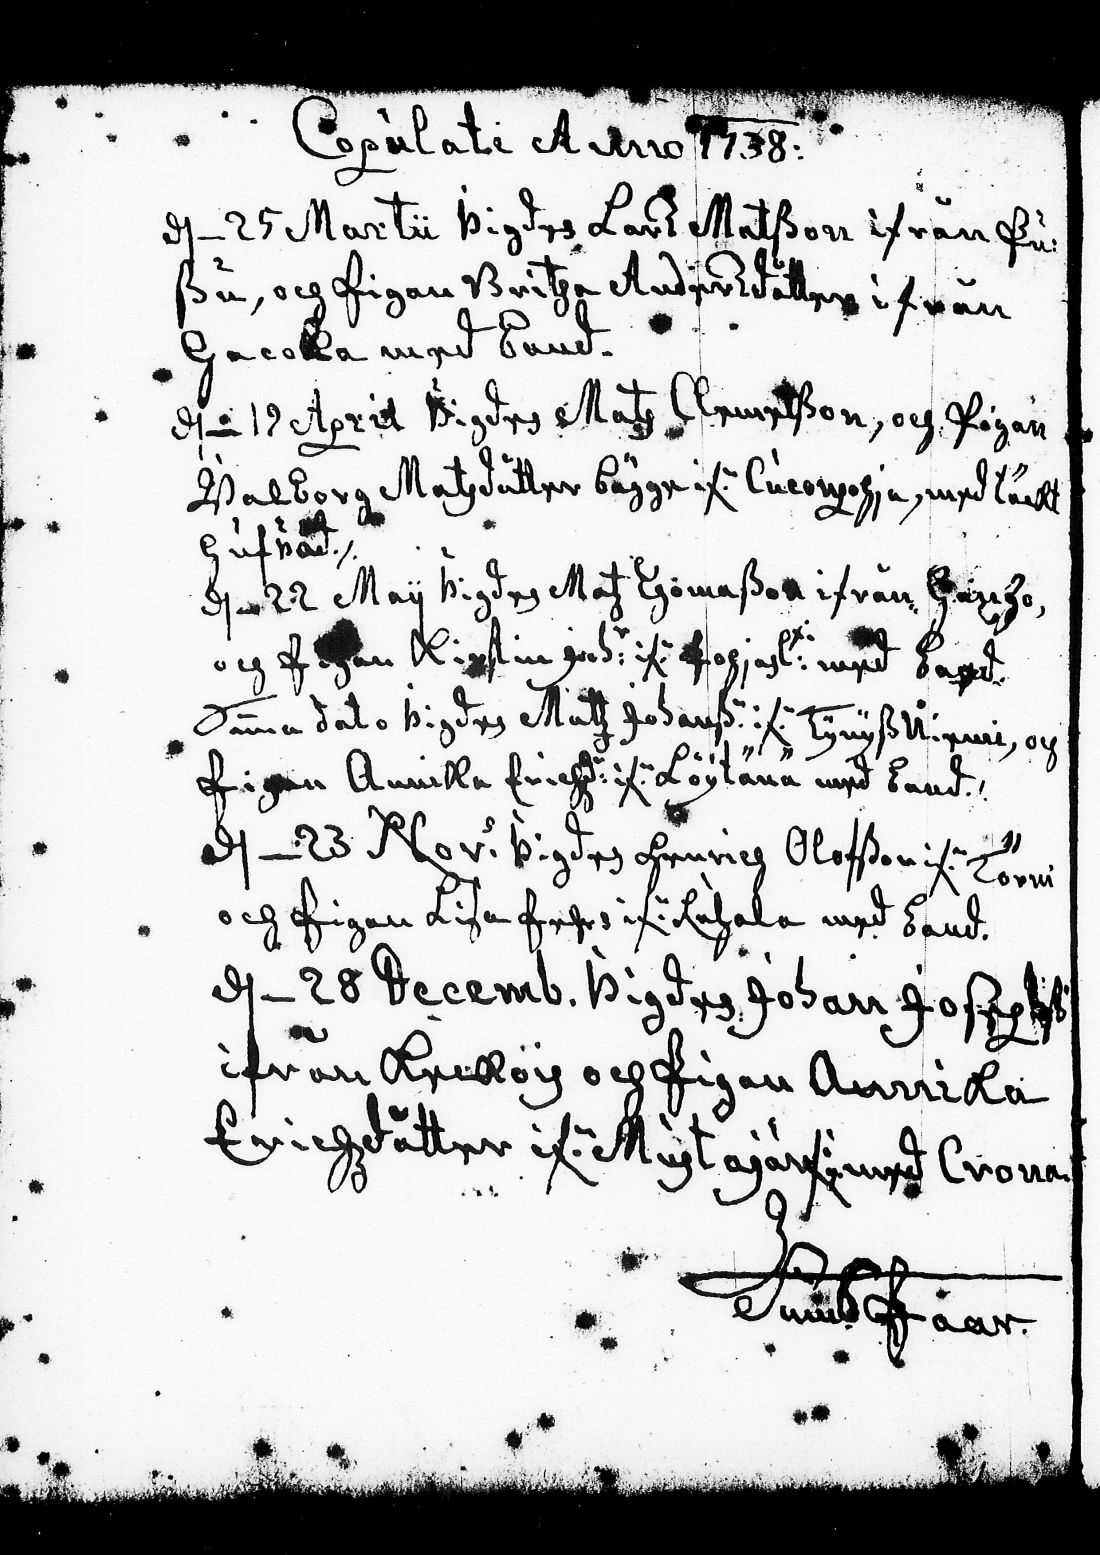 Copulati Anno 1738:
d. 25 Martii vigdes Lars Matßon ifrån Pu:
ßu, och Pigan Britha Andersdåtter ifrån
Hacolla med Band.
d. 19 April vigdes Matz Clemetßon, och Pigan
Valborg Matzdåtter bägge if: Cucorpohja, med täckt
hufvud./.
d. 22 Maij vigdes Matz Thomaßon ifrån
och Pigan Kirstin Joh: if: med Band.
Samma dato vigdes Matz Johanß: if: och
Pigan Annika Erichzd: if: Löytänä med Band./
d. 23 Nov: vigdes Henrich Olofßon if: Törni
och Pigan Lisa if: Luhala med Band.
d. 28 Decemb. vigdes Johan Josephß:
ifrån och Pigan Annika
Erichzdåtter if: med Crona.
Sum: Paar.